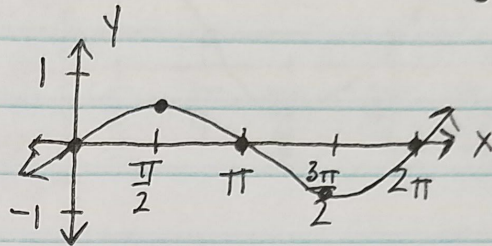 y
1
π/2
π
3π/2
2π
x
-1